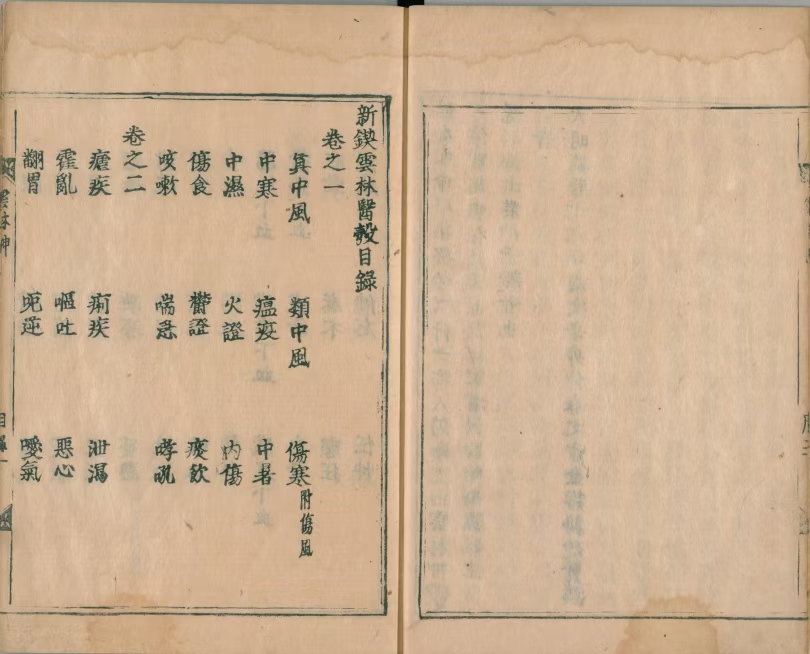 新鍥雲林醫彀目錄
卷之一
真中風 類中風 傷寒附傷風
中寒 瘟疫 中暑
中濕 火證 內傷
傷食 鬱證 痰飲
咳嗽 喘急 哮吼
卷之二
瘧疾 痢疾 泄瀉
霍亂 嘔吐 惡心
翻胃 呃逆 噯氣
雲林神
目錄一